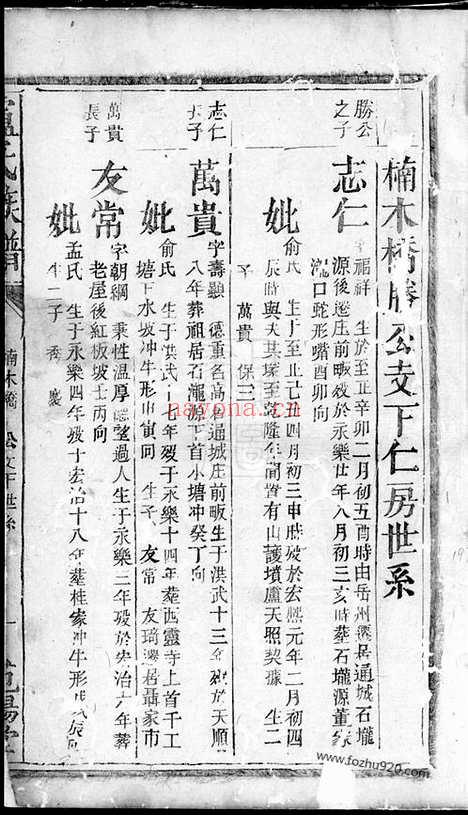 楠木橋勝公支下仁房世系
勝公之子
志仁
福祥 生於至正辛卯二月初五酉時由岳州遷居通城石壠
源後遷庄前畈歿於永樂廿年八月初三亥時葬石壠源董家
口蛇形嘴酉卯向
妣
俞氏 生于至己四月初三申時歿於宏熙元年二月初四
辰時與夫其塚至乾隆年間曾有山護墳盧天照契據 生二
子 萬貴 保三
志仁
子
萬貴
字壽顯 德重名高居通城庄前畈生于洪武十三年歿於天順
八年葬祖居石壠源下首小塘冲癸丁向
妣
俞氏 生于洪武十年歿于永樂十四年葬西靈寺上首千工
塘下水坡冲牛形山寅向 生子 友常 友琦遷居聶家市
萬貴長子
友常
字朝綱 秉性溫厚 望過人生于永樂二年歿於宏治六年葬
老屋後紅板坡壬丙向
妣
孟氏 生于永樂四年歿于宏治十八年葬桂家冲牛形戌辰向
生二子 秀 慶
氏族譜
楠木橋 公支下世系
一
堂
nayona.cn
www.fozhu920.com